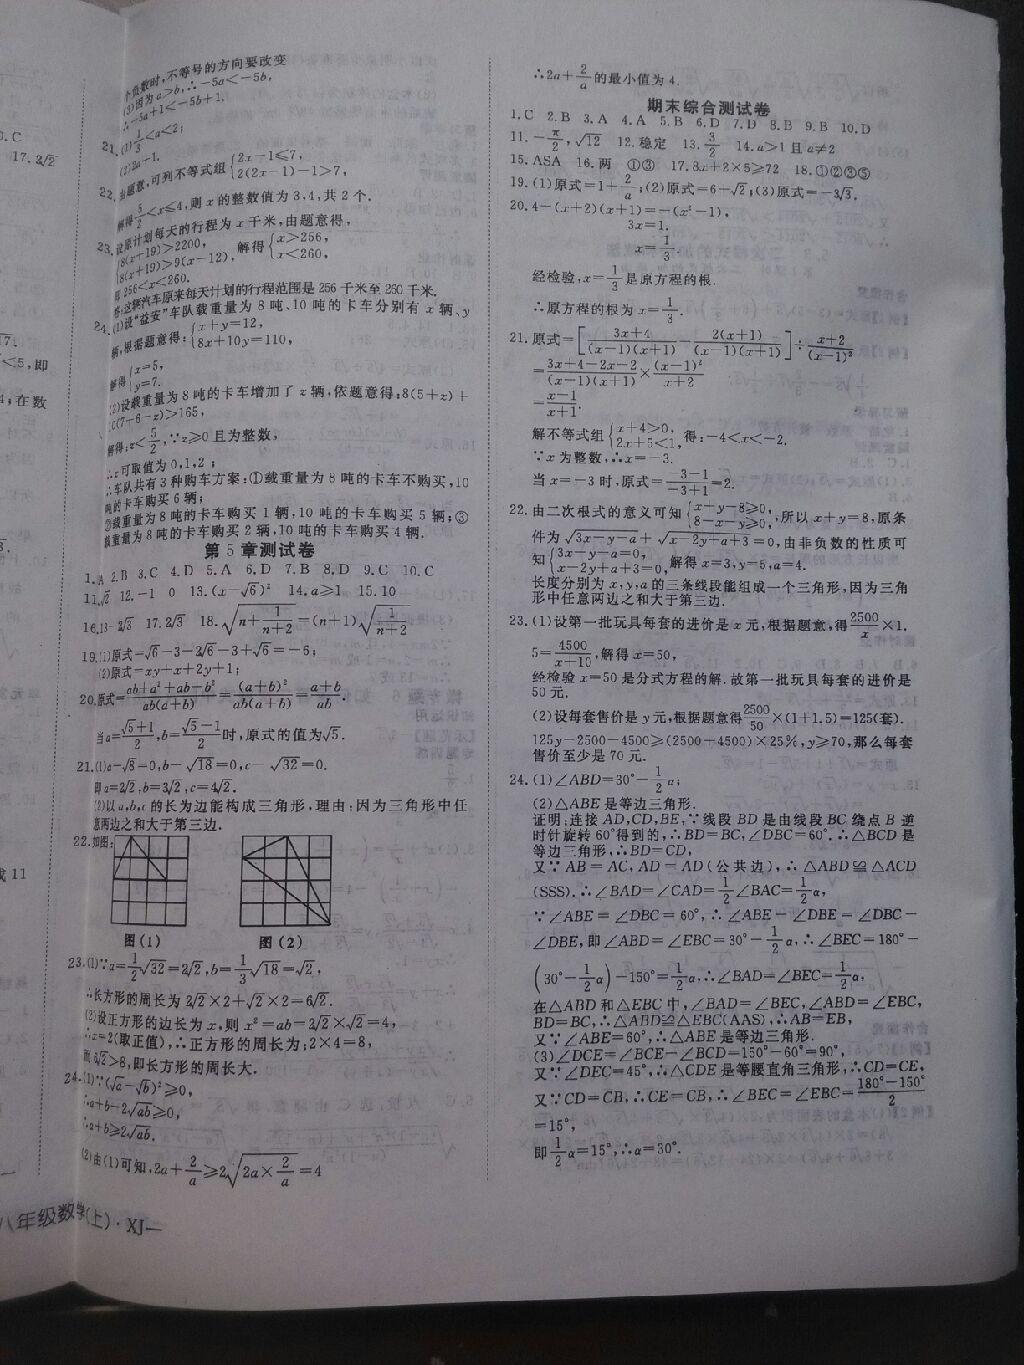 0.C
17.2√2
17.
<5,即
4,在数
成11
个负数时,不等号的方向要改变
(3)因为a>b,∴-5a<-5b,
∴-5a+1<-5b+1.
21.(1)1/3<a<2;
(2)3a-1.
22.由题意,可列不等式组{2x-1≤7, 2(2x-1)-1>7,
解得5/2<x≤4,则x的整数值为3,4,共2个.
23.设原计划每天的行程为x千米,由题意得,
{8(x+19)>2200, 8(x+19)>9(x-12), 解得{x>256, x<260.
即256<x<260.
答:这辆汽车原来每天计划的行程范围是256千米至260千米.
24.(1)设“益安”车队载重量为8吨、10吨的卡车分别有x辆、y
辆,根据题意得:{x+y=12, 8x+10y=110,
解得{x=5, y=7.
(2)设载重量为8吨的卡车增加了z辆,依题意得:8(5+z)+
10(7-6-z)>165,
解得:z<5/2,∵z≥0且为整数,
∴z可取值为0,1,2;
∴车队共有3种购车方案:①载重量为8吨的卡车不购买,10
吨的卡车购买6辆;
②载重量为8吨的卡车购买1辆,10吨的卡车购买5辆;③
载重量为8吨的卡车购买2辆,10吨的卡车购买4辆.
第5章测试卷
1.A 2.B 3.C 4.D 5.A 6.D 7.B 8.D 9.C 10.C
11.√2 12.-1 0 13.(x-√6)² 14.a≥1 15.10
16.13-2√3 17.2√3 18.√(n+1/(n+2))=(n+1)√(1/(n+2))
19.(1)原式=√6-3-2√6-3+√6=-6;
(2)原式=xy-x+2y+1;
20.原式=(ab+a²+ab+b²)/(ab(a+b))=(a+b)²/(ab(a+b))=(a+b)/ab.
当a=(√5+1)/2,b=(√5-1)/2时,原式的值为√5.
21.(1)a-√8=0,b-√18=0,c-√32=0.
即a=2√2,b=3√2,c=4√2.
(2)以a,b,c的长为边能构成三角形,理由:因为三角形中任
意两边之和大于第三边.
22.如图:
图(1) 图(2)
23.(1)∵a=1/2√32=2√2,b=1/3√18=√2,
∴长方形的周长为2√2×2+√2×2=6√2.
(2)设正方形的边长为x,则x²=ab=2√2×√2=4,
∴x=2(取正值),∴正方形的周长为:2×4=8,
而6√2>8,即长方形的周长大.
24.(1)∵(√a-√b)²≥0,
∴a+b-2√ab≥0,
∴a+b≥2√ab.
(2)由(1)可知,2a+2/a≥2√(2a×2/a)=4
八年级数学(上)·XJ—
∴2a+2/a的最小值为4.
期末综合测试卷
1.C 2.B 3.A 4.A 5.B 6.D 7.D 8.B 9.B 10.D
11.-π/2,√12 12.稳定 13.3/2 14.a>1且a≠2
15.ASA 16.两 ①③ 17.8x+2×5≥72 18.①②③⑤
19.(1)原式=1+2/a;(2)原式=6-√2;(3)原式=-3√3.
20.4-(x+2)(x+1)=-(x²-1),
3x=1,
x=1/3
经检验,x=1/3是原方程的根.
∴原方程的根为x=1/3.
21.原式=[(3x+4)/((x-1)(x+1))-2(x+1)/((x-1)(x+1))]÷(x+2)/(x-1)²
=(3x+4-2x-2)/((x-1)(x+1))×(x-1)²/(x+2)
=(x-1)/(x+1).
解不等式组{x+4>0, 2x+5<1,得:-4<x<-2.
∵x为整数,∴x=-3.
当x=-3时,原式=(-3-1)/(-3+1)=2.
22.由二次根式的意义可知{x-y-8≥0, 8-x-y≥0,所以x+y=8,原条
件为√(3x-y-a)+√(x-2y+a+3)=0,由非负数的性质可
知{3x-y-a=0, x-2y+a+3=0,解得x=3,y=5,a=4.
长度分别为x,y,a的三条线段能组成一个三角形,因为三角
形中任意两边之和大于第三边.
23.(1)设第一批玩具每套的进价是x元,根据题意,得2500/x×1.
5=4500/(x+10),解得x=50,
经检验x=50是分式方程的解.故第一批玩具每套的进价是
50元.
(2)设每套售价是y元,根据题意得2500/50×(1+1.5)=125(套).
125y-2500-4500≥(2500+4500)×25%,y≥70,那么每套
售价至少是70元.
24.(1)∠ABD=30°-1/2α;
(2)△ABE是等边三角形.
证明:连接AD,CD,BE,∵线段BD是由线段BC绕点B逆
时针旋转60°得到的,∴BD=BC,∠DBC=60°.∴△BCD是
等边三角形,∴BD=CD,
又∵AB=AC,AD=AD(公共边),∴△ABD≌△ACD
(SSS).∴∠BAD=∠CAD=1/2∠BAC=1/2α,
∵∠ABE=∠DBC=60°,∴∠ABE-∠DBE=∠DBC-
∠DBE,即∠ABD=∠EBC=30°-1/2α,∴∠BEC=180°-
(30°-1/2α)-150°=1/2α.∴∠BAD=∠BEC=1/2α.
在△ABD和△EBC中,∠BAD=∠BEC,∠ABD=∠EBC,
BD=BC,∴△ABD≌△EBC(AAS),∴AB=EB,
又∵∠ABE=60°,∴△ABE是等边三角形.
(3)∠DCE=∠BCE-∠BCD=150°-60°=90°,
又∵∠DEC=45°,∴△CDE是等腰直角三角形,∴CD=CE,
又∵CD=CB,∴CE=CB,∴∠BEC=∠EBC=(180°-150°)/2
=15°,
即1/2α=15°,∴α=30°.